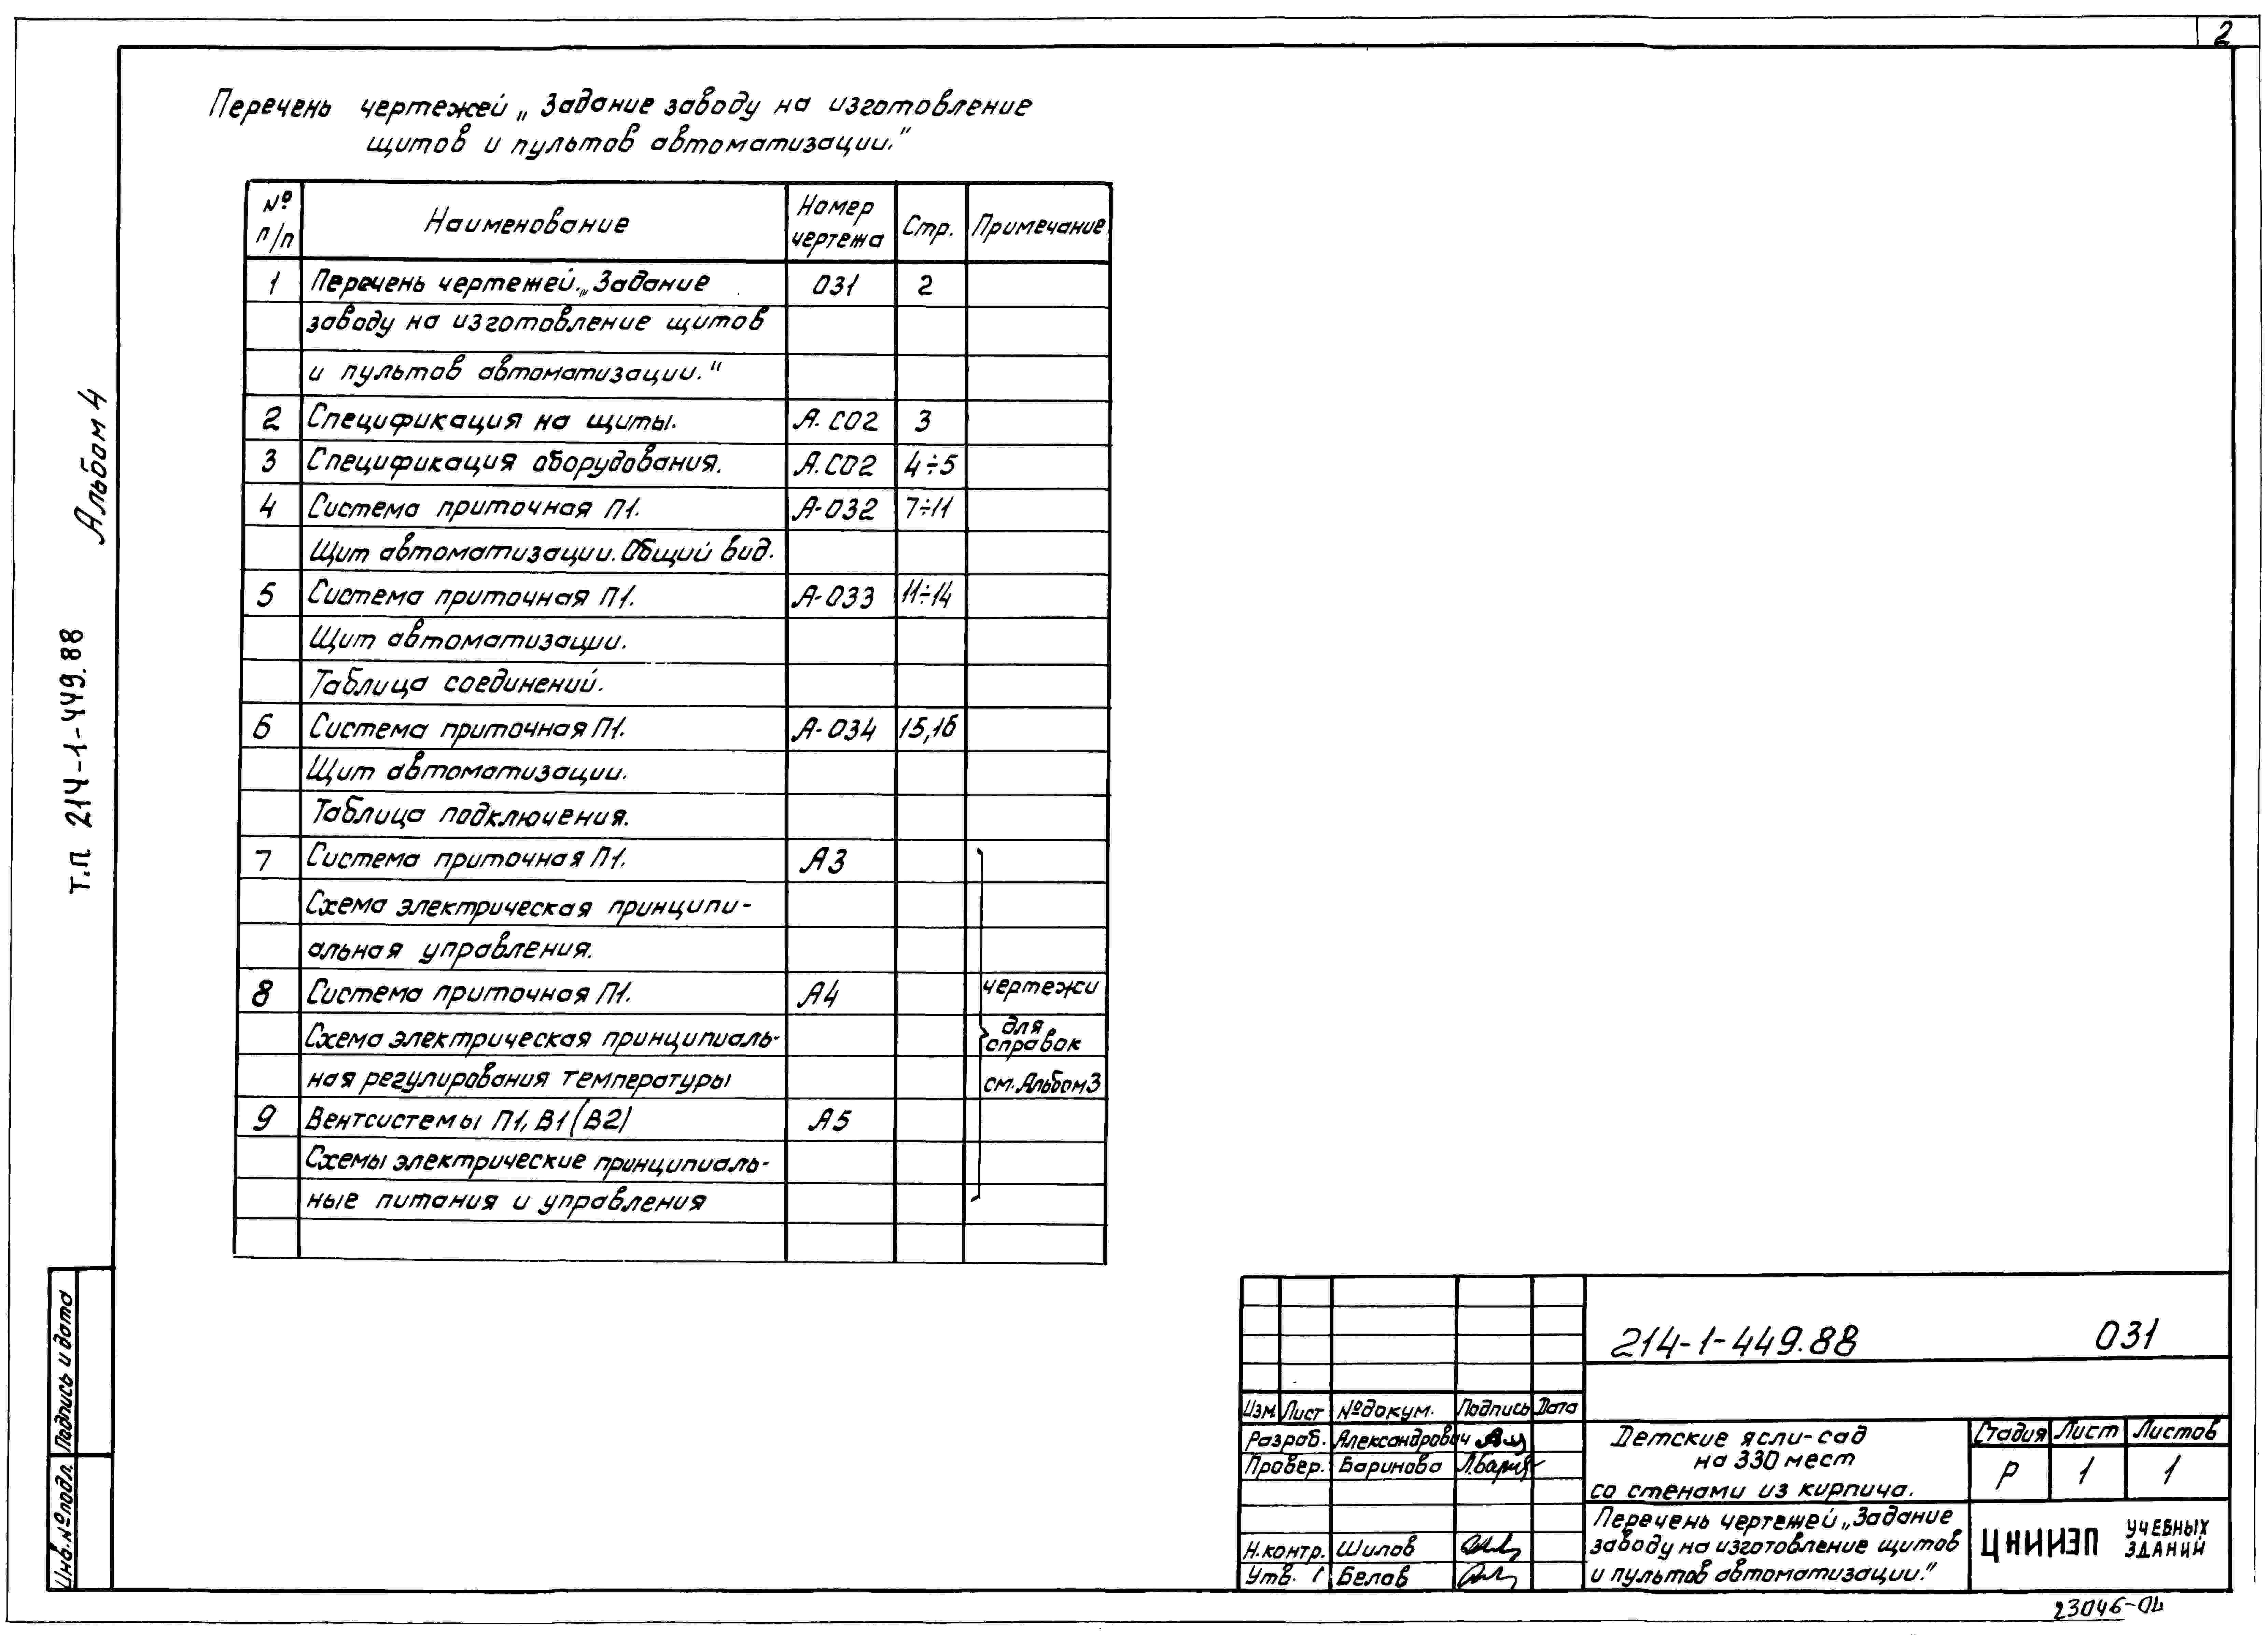 2
Перечень чертежей „Задание заводу на изготовление
щитов и пультов автоматизации."
№ п/п Наименование Номер чертежа Стр. Примечание
1 Перечень чертежей „Задание 031 2
заводу на изготовление щитов
и пультов автоматизации."
2 Спецификация на щиты. А.СО2 3
3 Спецификация оборудования. А.СО2 4÷5
4 Система приточная П1. А-032 7÷11
Щит автоматизации. Общий вид.
5 Система приточная П1. А-033 11÷14
Щит автоматизации.
Таблица соединений.
6 Система приточная П1. А-034 15,16
Щит автоматизации.
Таблица подключения.
7 Система приточная П1. А3
Схема электрическая принципи-
альная управления.
8 Система приточная П1. А4 чертежи
Схема электрическая принципиаль- для справок
ная регулирования температуры см. Альбом 3
9 Вентсистемы П1, В1 (В2) А5
Схемы электрические принципиаль-
ные питания и управления
Альбом 4
т.п 214-1-449.88
Подпись и дата
Инв.№подл.
214-1-449.88 031
Изм Лист №докум. Подпись Дата
Разраб. Александрович
Провер. Баринова
Н.контр. Шилов
Утв. Белав
Детские ясли-сад
на 330 мест
со стенами из кирпича.
Стадия Лист Листов
Р 1 1
Перечень чертежей „Задание
заводу на изготовление щитов
и пультов автоматизации."
ЦНИИЭП УЧЕБНЫХ ЗДАНИЙ
23046-04